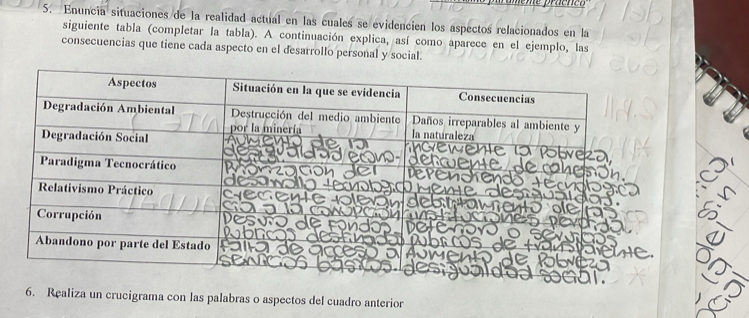 5. Enuncia situaciones de la realidad actual en las cuales se evidencien los aspectos relacionados en la
siguiente tabla (completar la tabla). A continuación explica, así como aparece en el ejemplo, las
consecuencias que tiene cada aspecto en el desarrollo personal y social.
Aspectos Situación en la que se evidencia Consecuencias
Degradación Ambiental Destrucción del medio ambiente por la minería Daños irreparables al ambiente y la naturaleza
Degradación Social AUMENTO de la desigualdad econo- incremente la pobreza, de cohesión.
Paradigma Tecnocrático Priorización del desarrollo tecnologico Dependiendo tecnologica mente desigualdad.
Relativismo Práctico creciente toleran cia a la corrupción debilitamiento de las instituciones perdida.
Corrupción Desvio de Fondos Publicos destinados Deterioro o servicios publicos de transparente.
Abandono por parte del Estado Falta de acceso a servicios basicos. Aumento de Pobreza desigualdad social.
6. Realiza un crucigrama con las palabras o aspectos del cuadro anterior